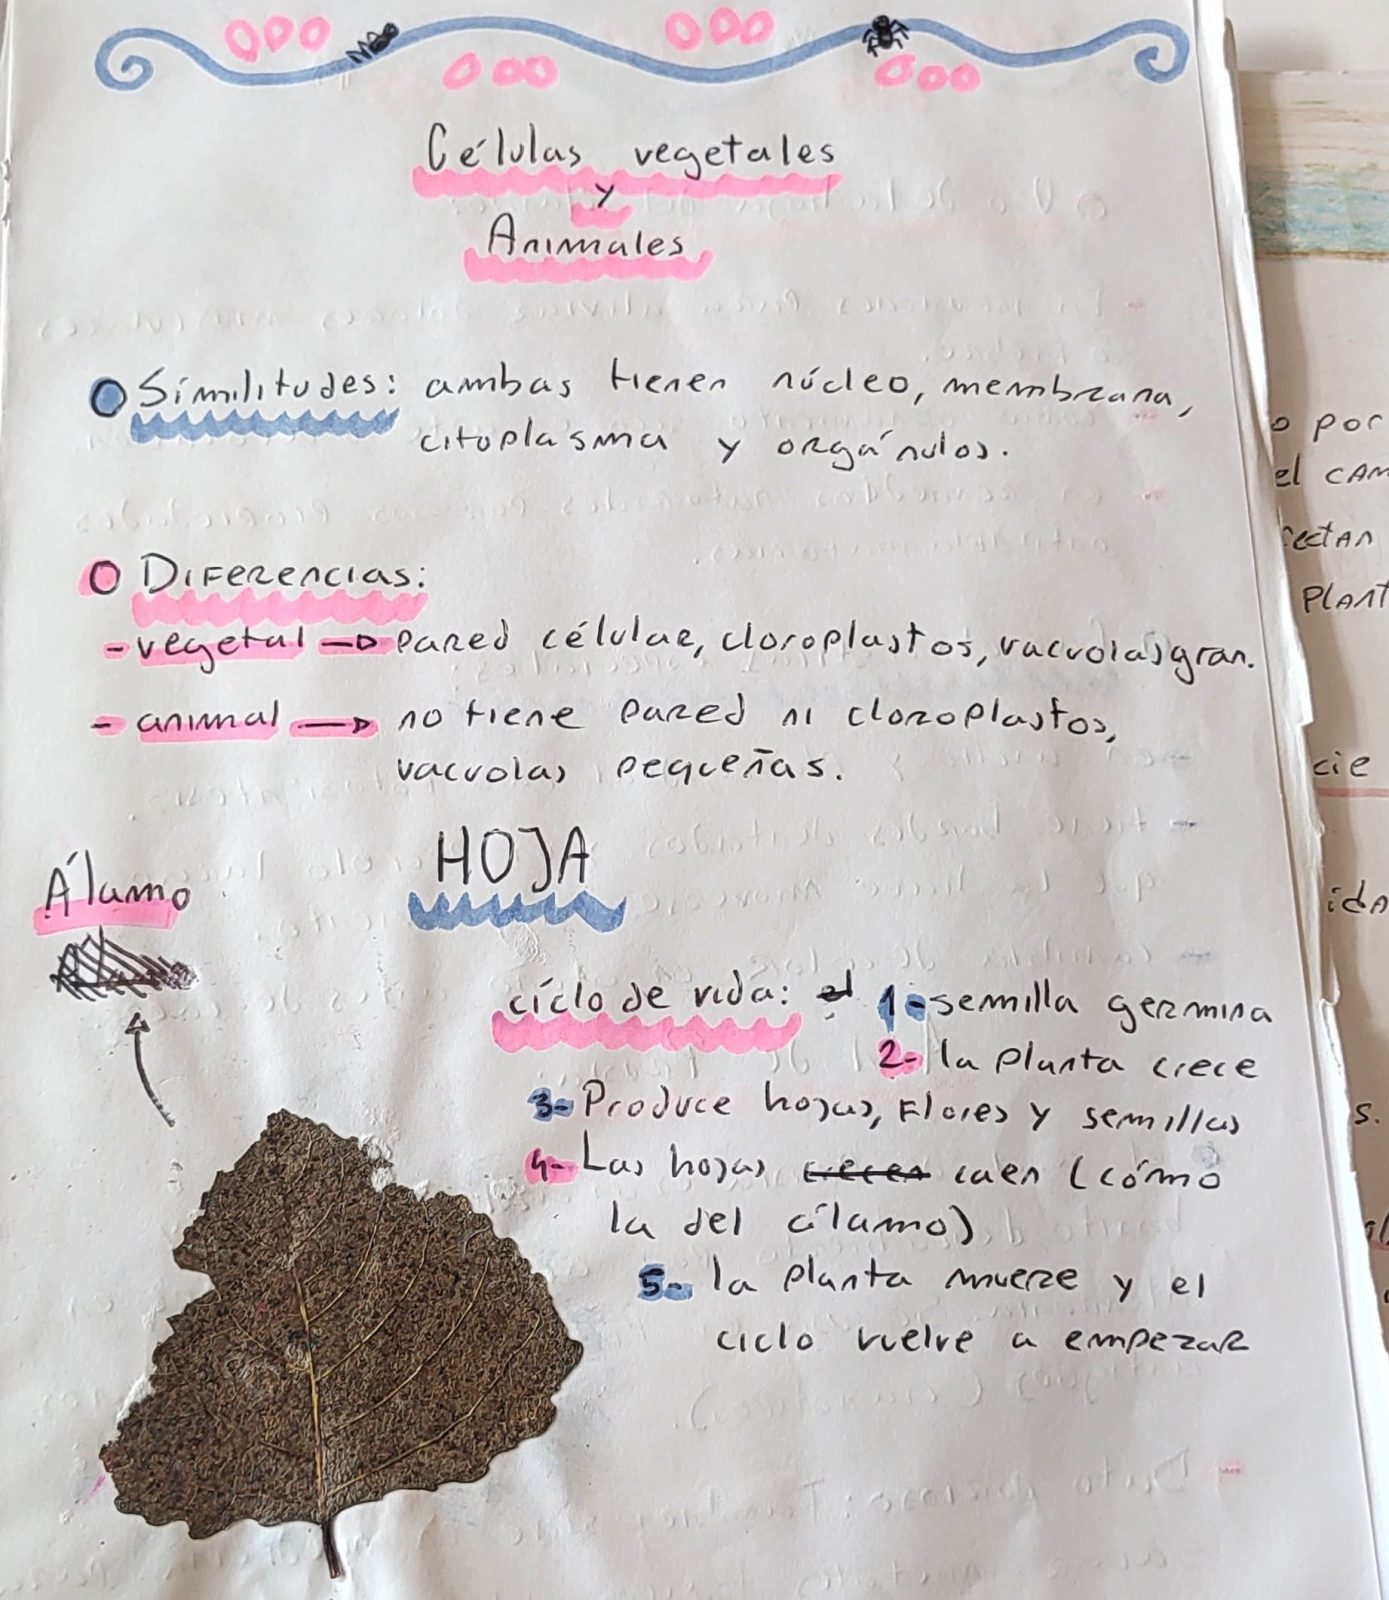 Células vegetales
y
Animales
Similitudes: ambas tienen núcleo, membrana,
citoplasma y orgánulos.
Diferencias:
- vegetal → pared célular, cloroplastos, vacuolas gran.
- animal → no tiene pared ni cloroplastos,
vacuolas pequeñas.
HOJA
Álamo
ciclo de vida: el 1- semilla germina
2- la planta crece
3- Produce hojas, Flores y semillas
4- Las hojas crecen caen (cómo
la del álamo)
5- la planta muere y el
ciclo vuelve a empezar
o por
el CAM
ectan
PLANT
cie
ida
s.